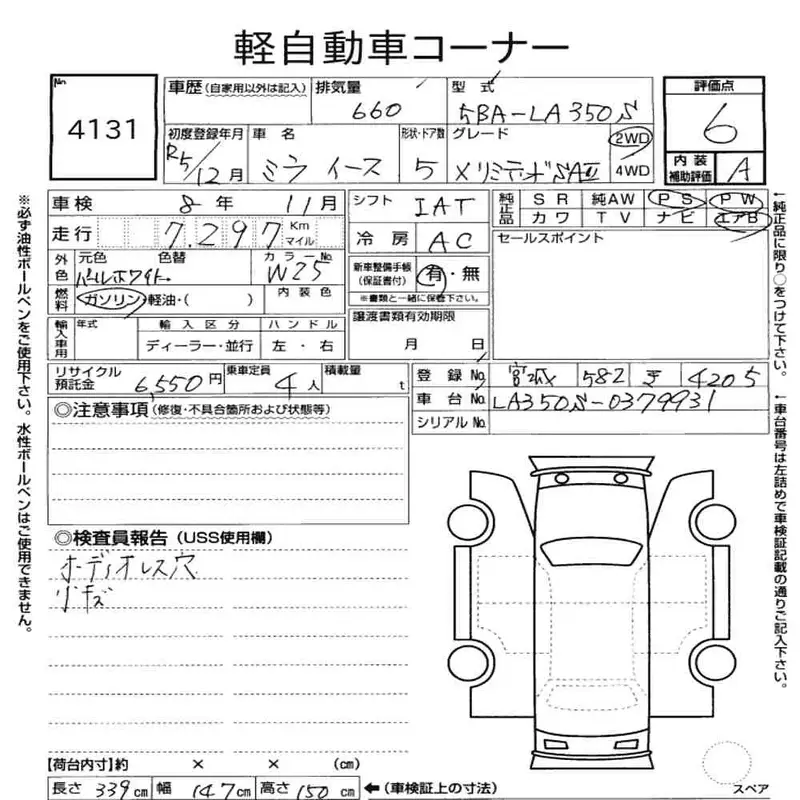 軽自動車コーナー
No
4131
車歴 (自家用以外は記入)
排気量
660
型式
5BA-LA350S
評価点
6
内装
補助評価
A
初度登録年月
R5/12月
車名
ミラ イース
形状・ドア数
5
グレード
X リミテッド SAⅢ
2WD
4WD
車検 8年 11月
走行 7,297 Km マイル
シフト IAT
冷房 AC
純正品
SR 純AW PS PW
カワ TV ナビ エアB
外色
元色 色替
パールホワイト
カラーNo.
W25
燃料
ガソリン・軽油・( )
内装色
新車整備手帳
(保証書付)
有・無
※書類と一緒に保管下さい。
セールスポイント
輸入車用
年式
輸入区分
ハンドル
ディーラー・並行
左・右
譲渡書類有効期限
月 日
リサイクル
預託金
6,550円
乗車定員
4人
積載量
t
登録No. 宮城 582 4205
車台No. LA350S-0379931
シリアルNo.
◎注意事項 (修復・不具合箇所および状態等)
◎検査員報告 (USS使用欄)
ボーディオレス穴
小キズ
【荷台内寸】約 × × (cm)
長さ 339cm 幅 147cm 高さ 150cm ←(車検証上の寸法)
スペア
※必ず油性ボールペンをご使用下さい。水性ボールペンはご使用できません。
←純正品に限り○をつけて下さい。
←車台番号は左詰めで車検証記載の通りご記入下さい。